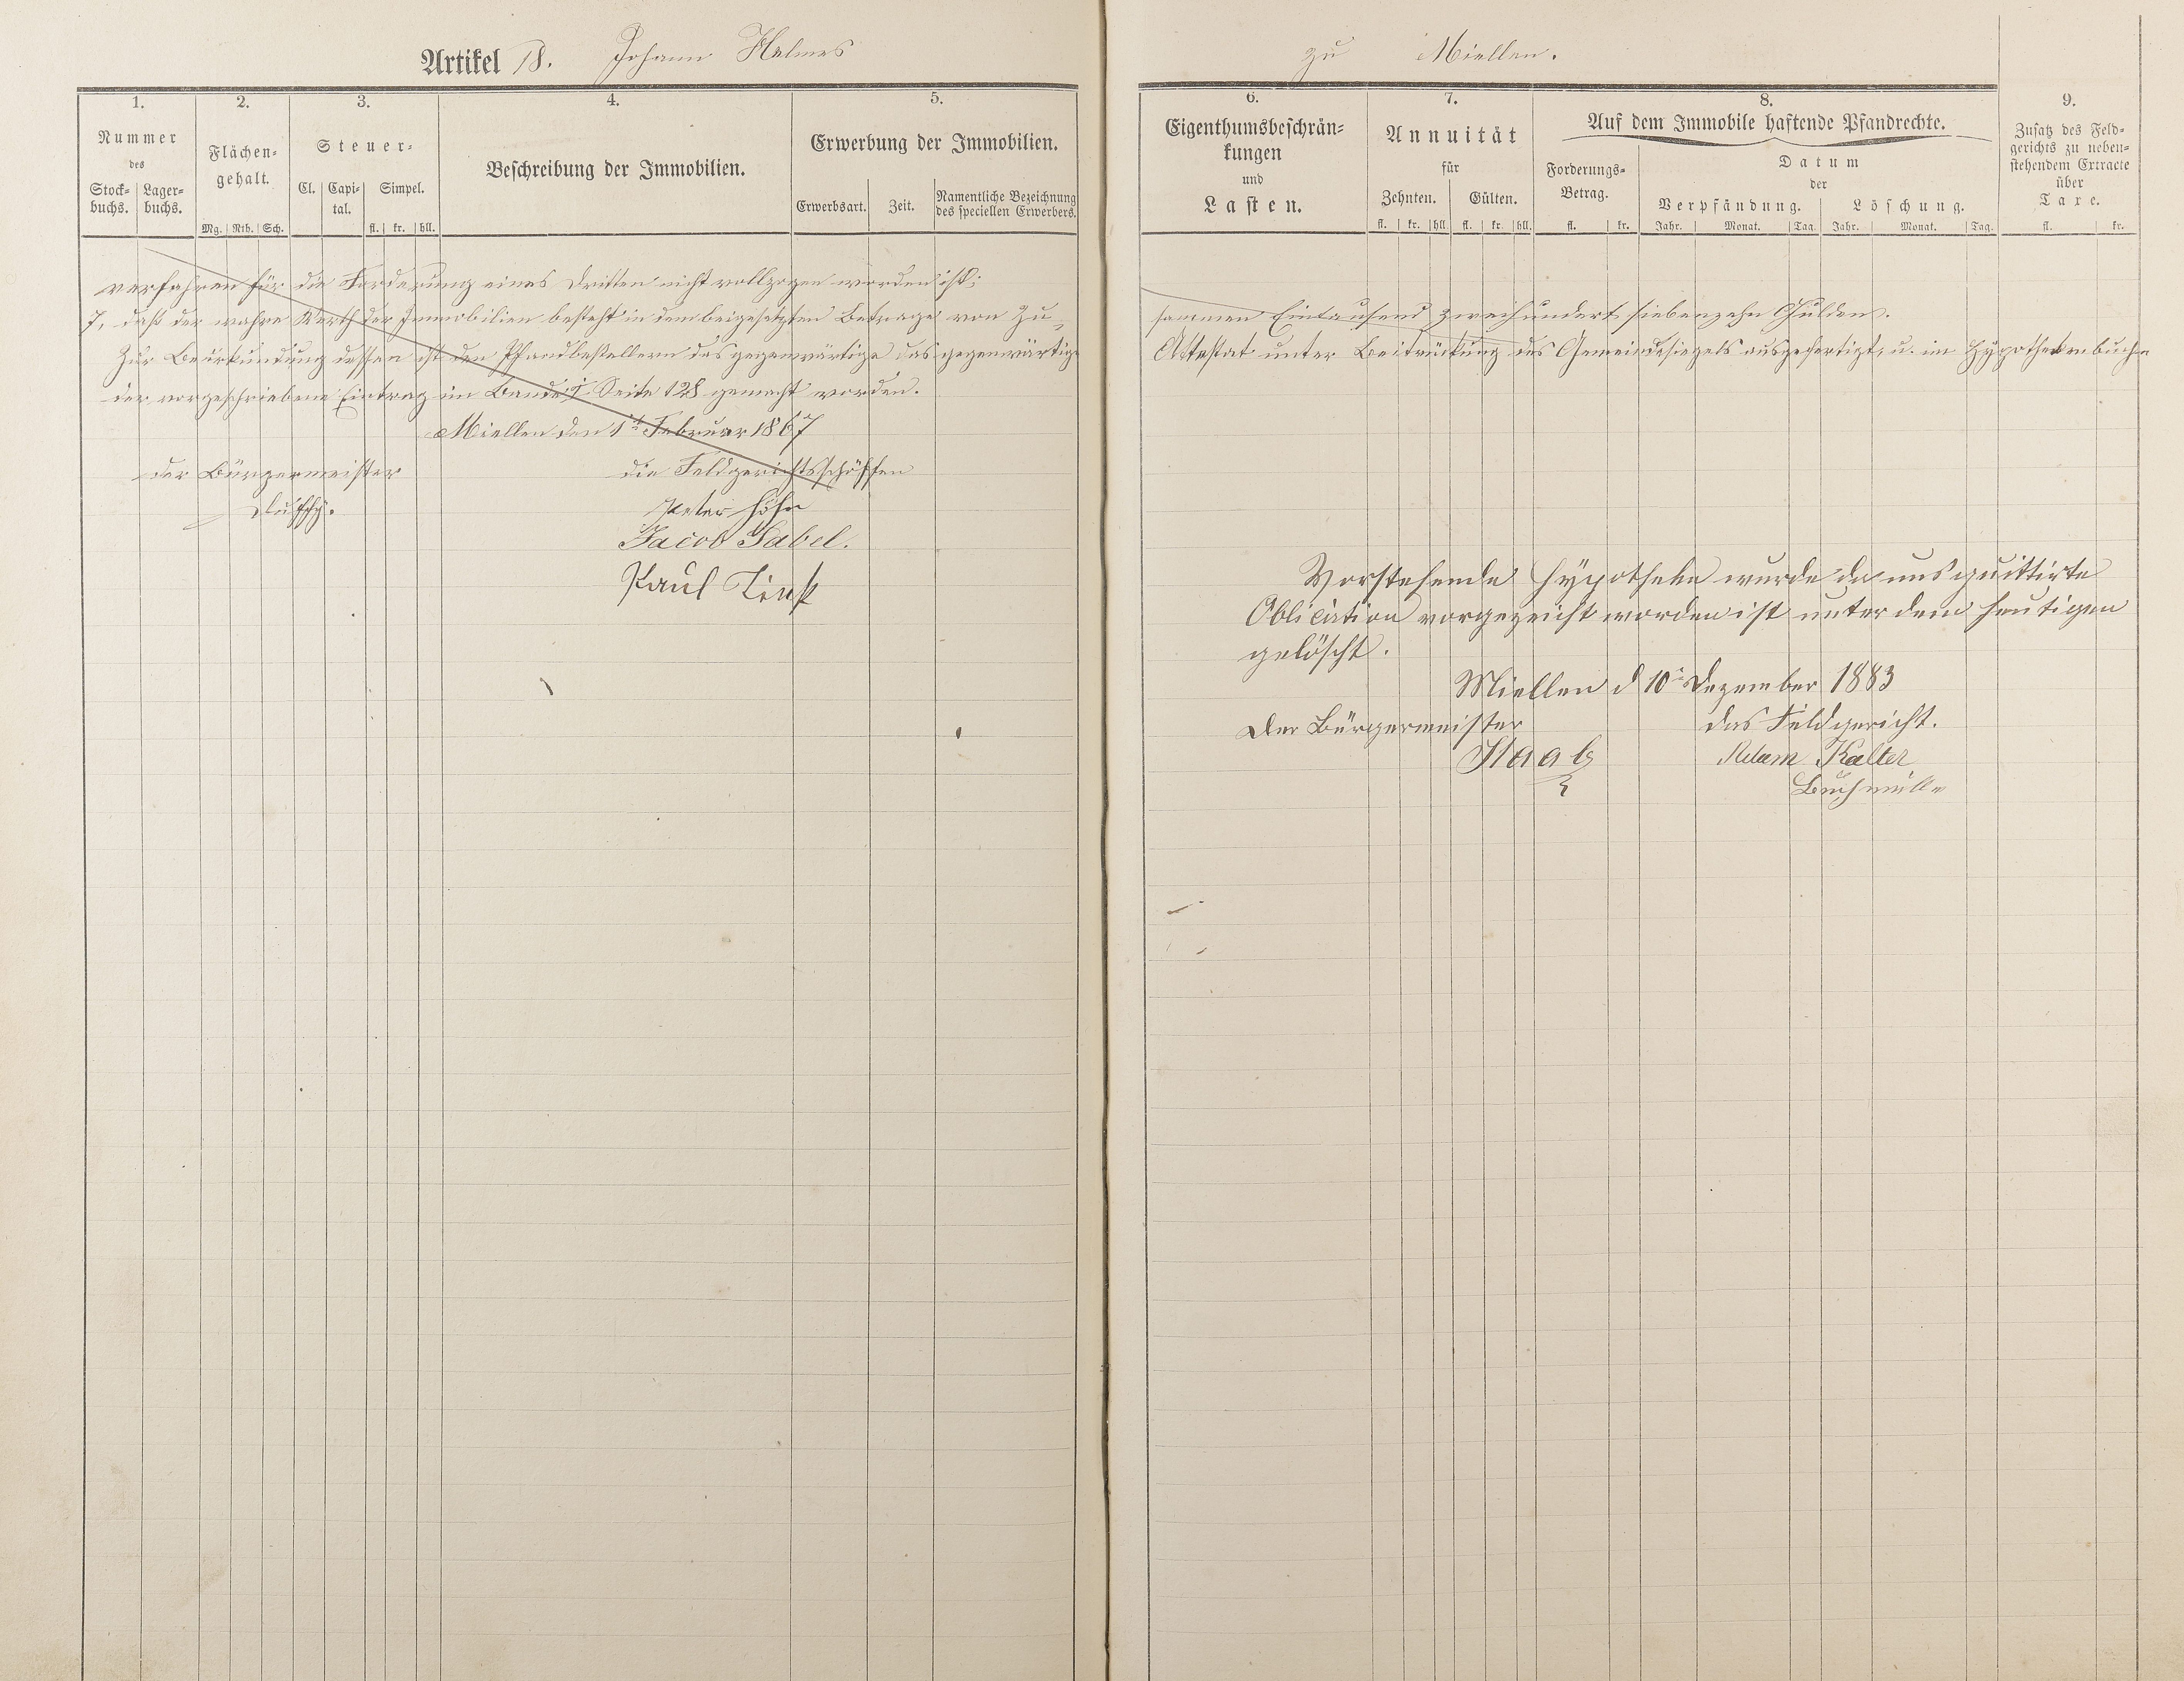 Artikel 18. Johann Helmes
zu Miellen.
1.
2.
3.
4.
5.
Nummer
des
Stock-
buchs.
Lager-
buchs.
Flächen-
gehalt.
Mg. Rth. Sch.
Steuer-
Cl. Capi-
tal.
Simpel.
fl. kr. hll.
Beschreibung der Immobilien.
Erwerbung der Immobilien.
Erwerbsart. Zeit.
Namentliche Bezeichnung
des speciellen Erwerbers.
6.
7.
8.
9.
Eigenthumsbeschrän-
kungen
und
Lasten.
Annuität
für
Zehnten. Gülten.
fl. kr. hll. fl. kr. hll.
Auf dem Immobile haftende Pfandrechte.
Forderungs-
Betrag.
fl. kr.
Datum
der
Verpfändung. Löschung.
Jahr. Monat. Tag. Jahr. Monat. Tag.
Zusatz des Feld-
gerichts zu neben-
stehendem Extracte
über
Taxe.
fl. kr.
verfahren für die Forderung eines Dritten nicht vollzogen worden ist;
7, daß der wahre Werth der Immobilien besteht in dem beigesetzten Betrage von Zu-
sammen Eintausend zweihundert siebenzehn Gulden.
Zur Beurkundung dessen ist den Pfandbestellern das gegenwärtige das gegenwärtige
Attestat unter Beidrückung des Gemeindesiegels ausgefertigt, u. im Hypothekenbuche
der vorgeschriebene Eintrag im Bande I Seite 128 gemacht worden.
Miellen den 1t Februar 1867
der Bürgermeister
die Feldgerichtsschöffen
Peter Höhn
Jacob Gabel.
Paul Link
Vorstehende Hypotheke wurde da uns quittirte
Oblication vorgezeicht worden ist unter dem heutigen
gelöscht.
Miellen d 10t Dezember 1883
Der Bürgermeister
das Feldgericht.
Staab
Adam Kalter